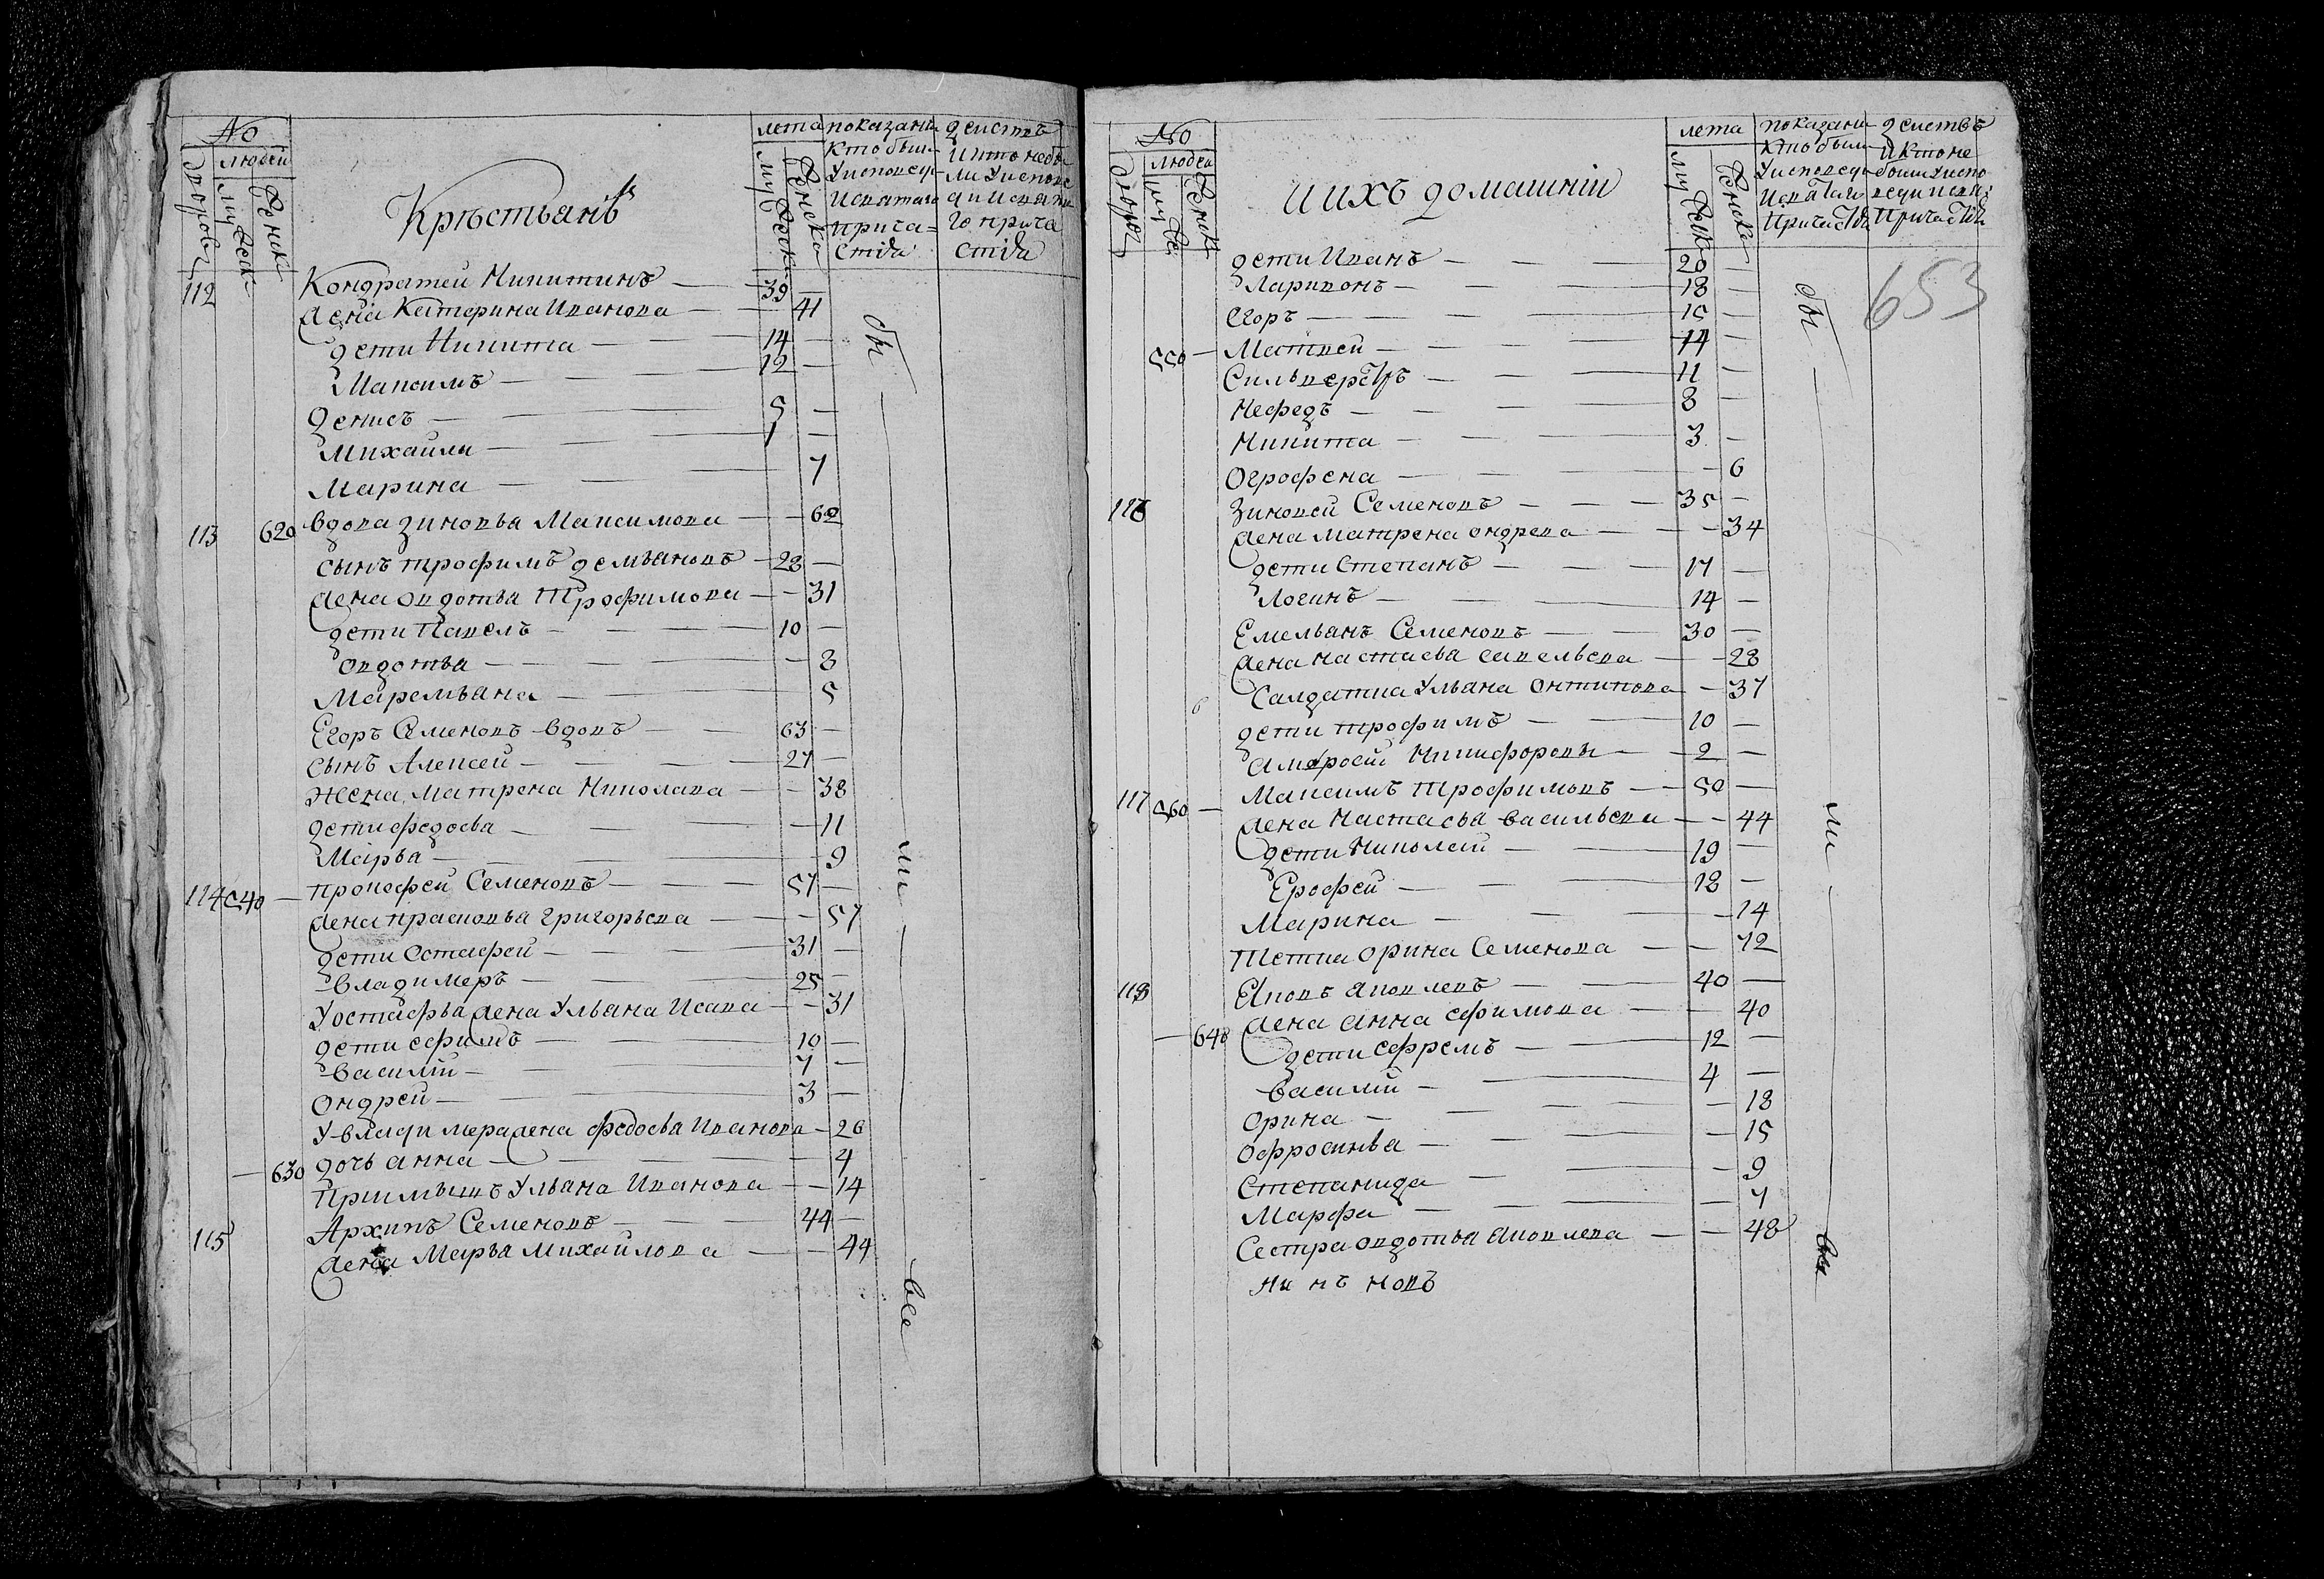 No
дворовъ
людей
муҗеска
женска
Крѣстьянѣ
лета
мужеска
женска
показани действъ
кто были и кто небы
у исповеди ли у испове
и святаго ди и свята
прича= го прича
стия стия
112 Кондратей Никитинъ — 39 —
жена Катерина Иванова — — 41
дети Никита — 14 —
Максимъ — 12 —
Денисъ — 5 —
Михайли — 1 —
Марина — 7
113 620 вдова Зиновья Максимова — — 62
сынъ трофимъ демьяновъ — 28 —
жена овдотья Трофимова — — 31
дети Павелъ — 10 —
овдотья — — 8
Маремьяна — 5
Егоръ Семеновъ вдовъ — 63 —
сынъ Алексей — 27 —
Жена Матрена Николава — — 38
дети федосья — — 11
Марья — 9
114 540 — прокофей Семеновъ — 57 —
жена прасковья григорьева — — 57
дети Остафей — 31 —
владимеръ — 25 —
У остафья жена Ульяна Исава — — 31
дети ефимъ — 10 —
василий — 7 —
ондрей — 3 —
У владимера жена федосья Иванова — 26
— 630 дочь анна — 4
Приимышъ Ульяна Иванова — — 14
115 Архипъ Семеновъ — 44 —
жена Марья Михайлова — — 44
бы
ли
все
No
дворов
людей
муже
женск
и ихъ домашнии
лета
мужеска
женска
показани действъ
кто были и кто не
у исповеди были у испо
и святаго веди и свят:
Причастия Причастия
653
дети Иванъ — 20 —
Ларивонъ — 18 —
егоръ — 15 —
550 — Матвей — 14 —
Сильверстръ — 11 —
Нефедъ — 8 —
Никита — 3 —
Огрофена — — 6
116 Зиновей Семеновъ — 35 —
жена матрена ондрева — — 34
дети Степанъ — 17 —
Логинъ — 14 —
Емельянъ Семеновъ — 30 —
жена настасья савельева — — 28
Салдатка Ульяна онтипова — 37
дети трофимъ — 10 —
амвросий Никифоровы — 2 —
117 560 — Максимъ Трофимовъ — 50 —
жена Настасья васильева — — 44
дети Николай — 19 —
Ерофей — 18 —
Марина — — 14
Тетка орина Семенова — — 72
118 Яковъ яковлевъ — 40 —
жена анна ефимова — — 40
— 640 дети ефремъ — 12 —
василий — 4 —
орина — — 18
офросинья — — 15
Степанида — — 9
Марфа — — 7
Сестра овдотья яковлева — — 48
бы
ли
все